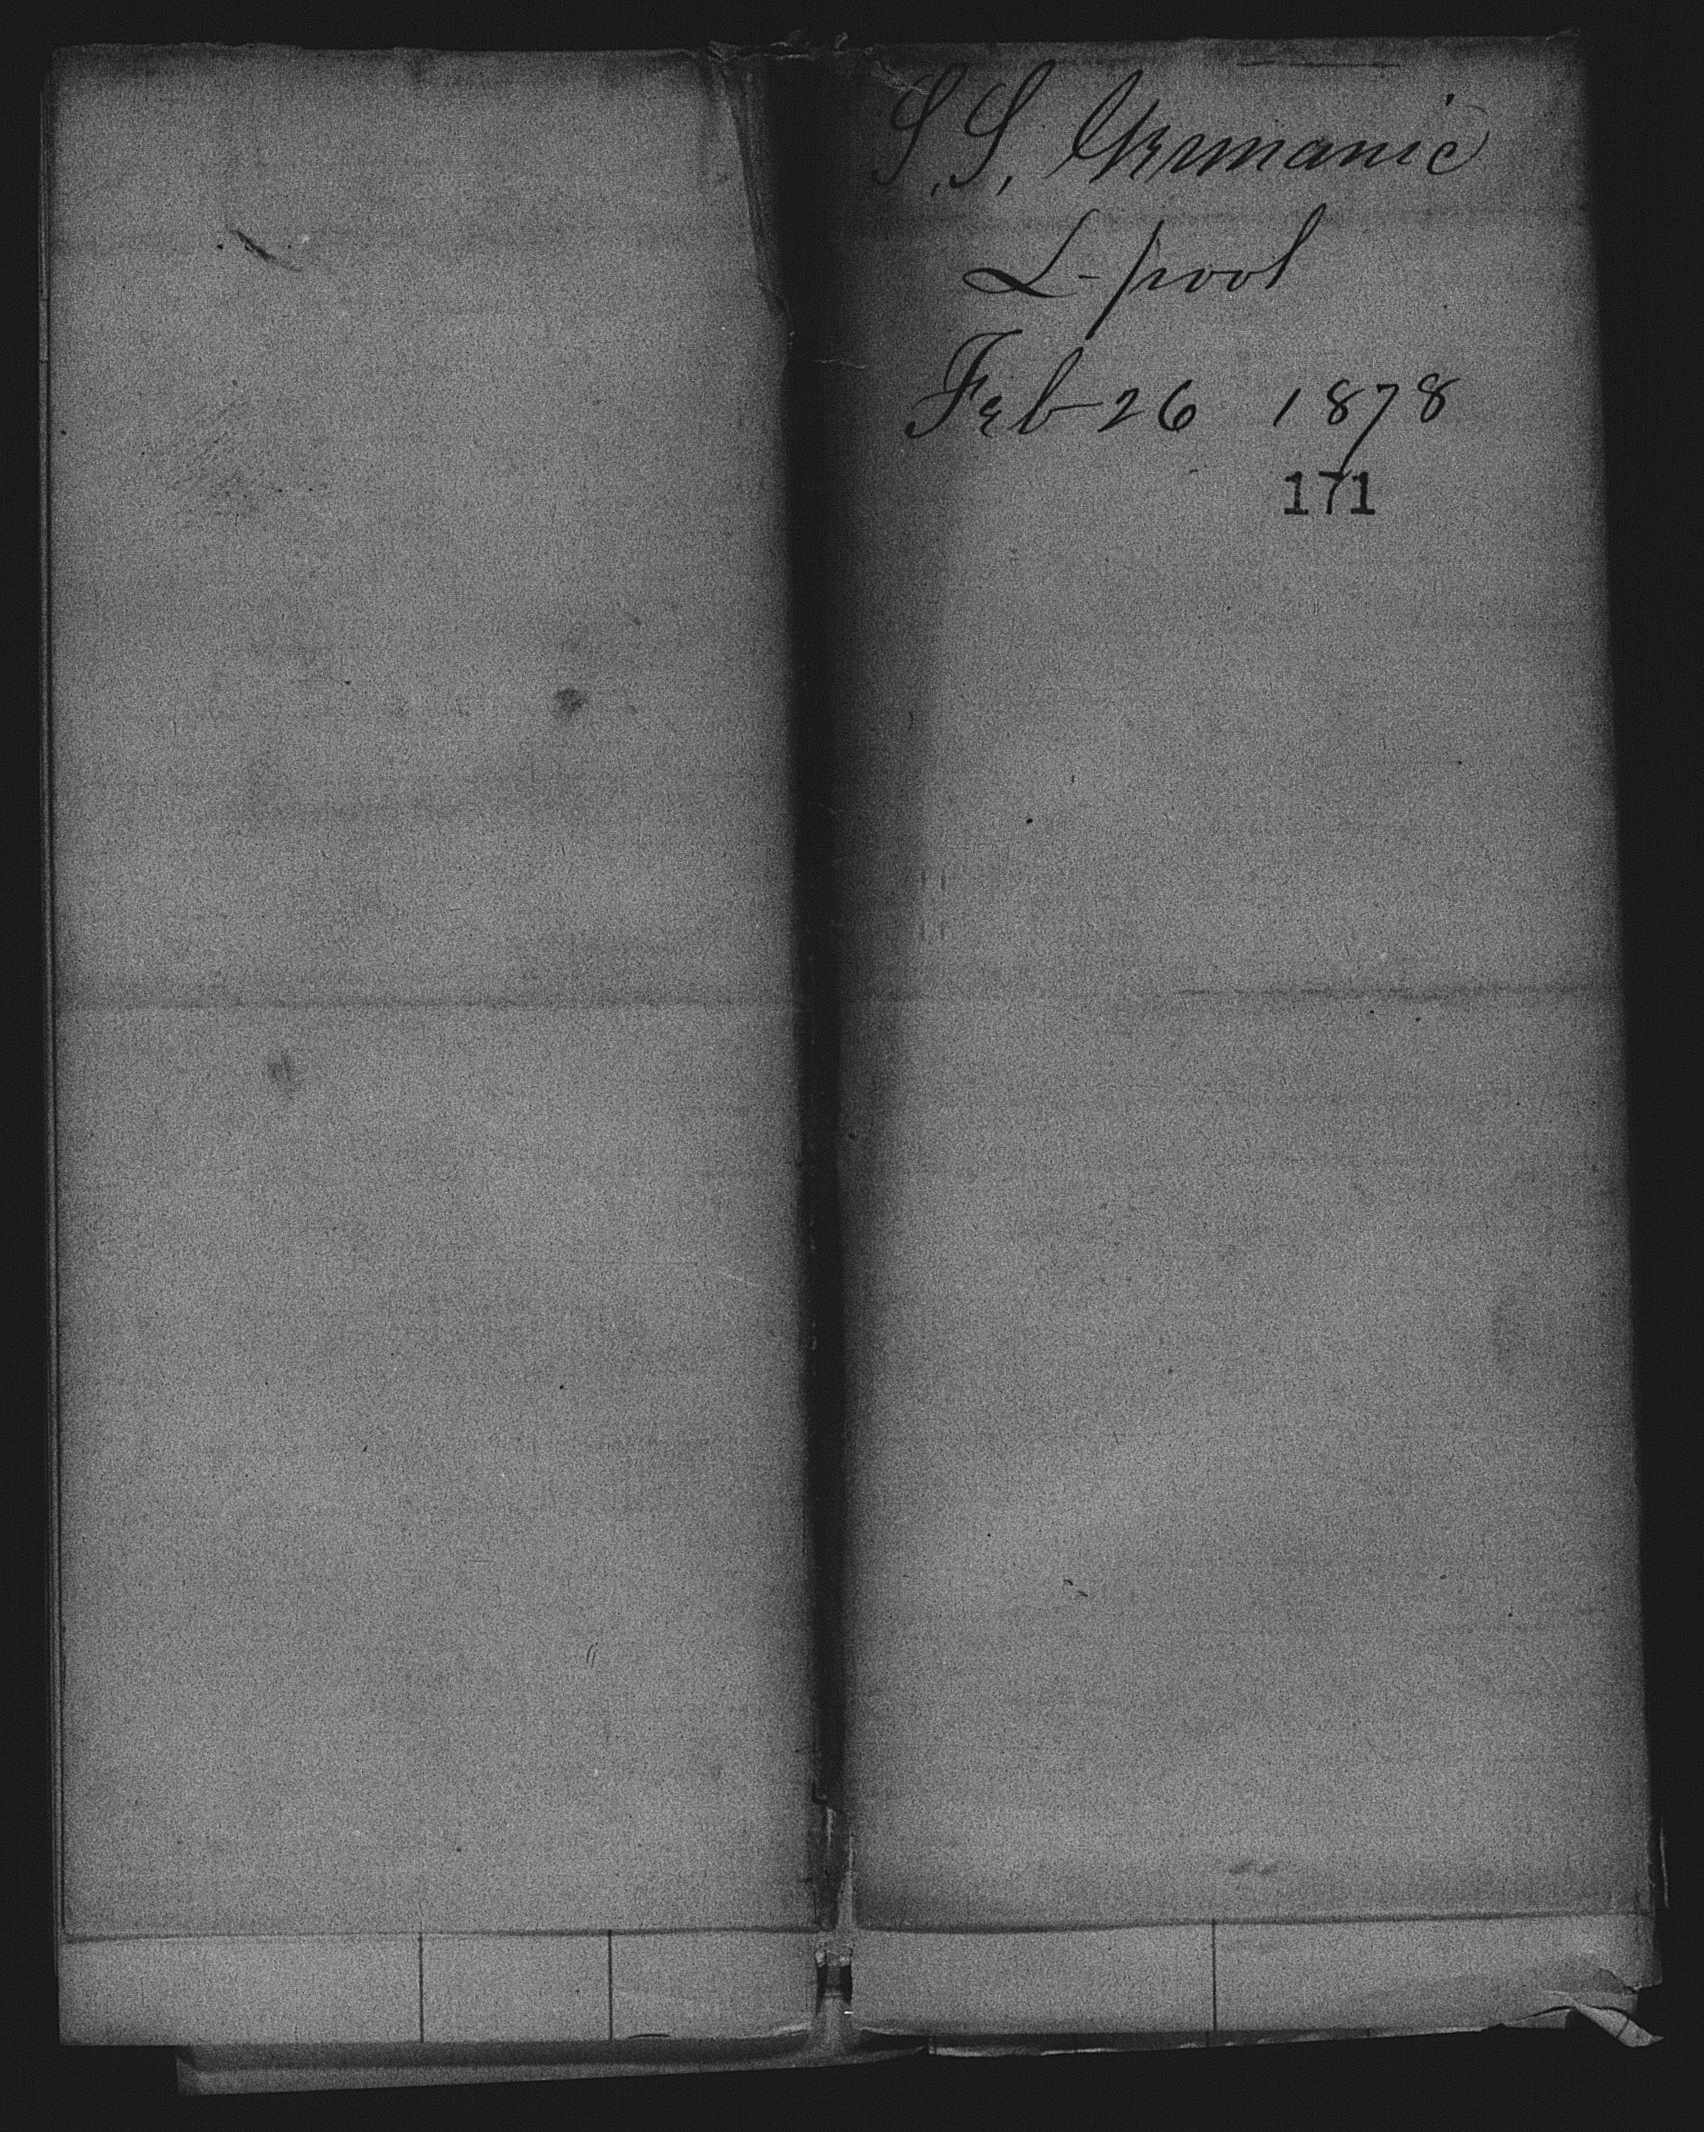 S.S. Germanic
L-pool
Feb 26 1878
171